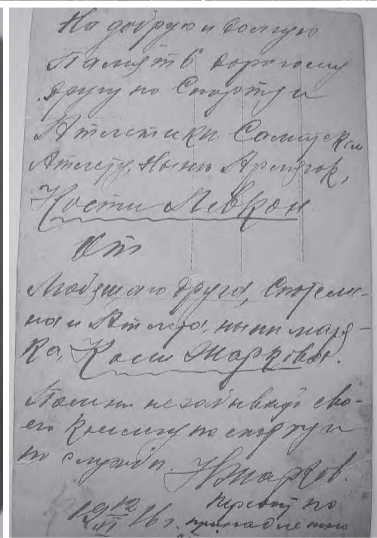 На добрую и долгую
Память дорогому
другу по Спорту и
Атлетики
Атлету, Нынѣ
Кости Левкон
От
Любящаго друга, Спортсме-
на и Атлета, ныни маля-
ка, Коли Жаркова.
Помни незабывай сво-
его Колинку по спорту и
по службѣ. НЖарков.
19 12/VI 16 г.